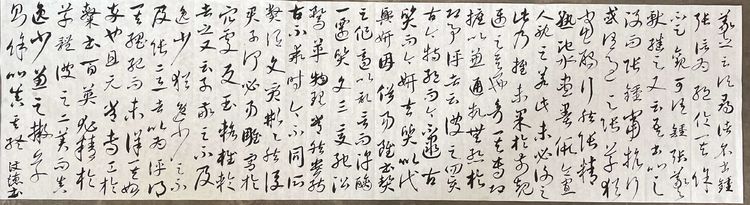 羲之云頃尋諸名書鍾
張信為絕倫其餘
不足觀可謂鍾張
獻繼之又云吾書比之
鍾張鍾當抗行
或謂過之張草猶
當雁行然張精
熟池水盡墨假令寡
人耽之若此未必謝之
此乃推
未果於前規
邁鍾之意也考其專
摭以兼通故無慚於
即事評者云彼之四賢
古今特絕而今不逮古
質而今妍夫質以代
興妍因俗易雖書契
之作適以記言而淳醨
一遷質文三變馳
鶩沿革物理常然貴能
古不乖時今不同弊
所謂文質彬彬然後
君子何必易雕宮於
穴處反玉輅於椎輪
者乎又云子敬之不及
逸少猶逸少之不
及鍾張意者以為評得
其綱紀而未詳其始
卒也且元常專工於
隸書百英尤精於
草體彼之二美而
逸少兼之擬草
則餘真